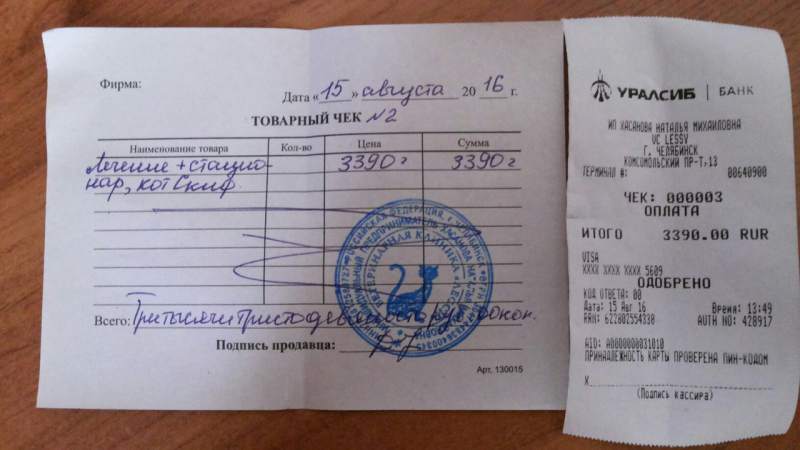 Фирма:
Дата «15» августа 2016 г.
ТОВАРНЫЙ ЧЕК №2
Наименование товара Кол-во Цена Сумма
Лечение + стацио- 3390 г 3390 г
нар, кот Скиф.
РОССИЙСКАЯ ФЕДЕРАЦИЯ, г. ЧЕЛЯБИНСК
ИНДИВИДУАЛЬНЫЙ ПРЕДПРИНИМАТЕЛЬ ХАСАНОВА
ВЕТЕРИНАРНАЯ КЛИНИКА
Всего: Три тысячи триста девяносто руб. 00 коп.
Подпись продавца:
Арт. 130015
УРАЛСИБ | БАНК
ИП ХАСАНОВА НАТАЛЬЯ МИХАИЛОВНА
VC LESSY
Г. ЧЕЛЯБИНСК
КОМСОМОЛЬСКИЙ ПР-Т,13
ТЕРМИНАЛ #: 00640900
ЧЕК: 000003
ОПЛАТА
ИТОГО 3390.00 RUR
VISA
XXXX XXXX XXXX 5609
ОДОБРЕНО
КОД ОТВЕТА: 00
Дата: 15 Авг 16 Время: 13:49
RRN: 622802554338 AUTH NO: 428917
AID: A0000000031010
ПРИНАДЛЕЖНОСТЬ КАРТЫ ПРОВЕРЕНА ПИН-КОДОМ
X
(Подпись кассира)